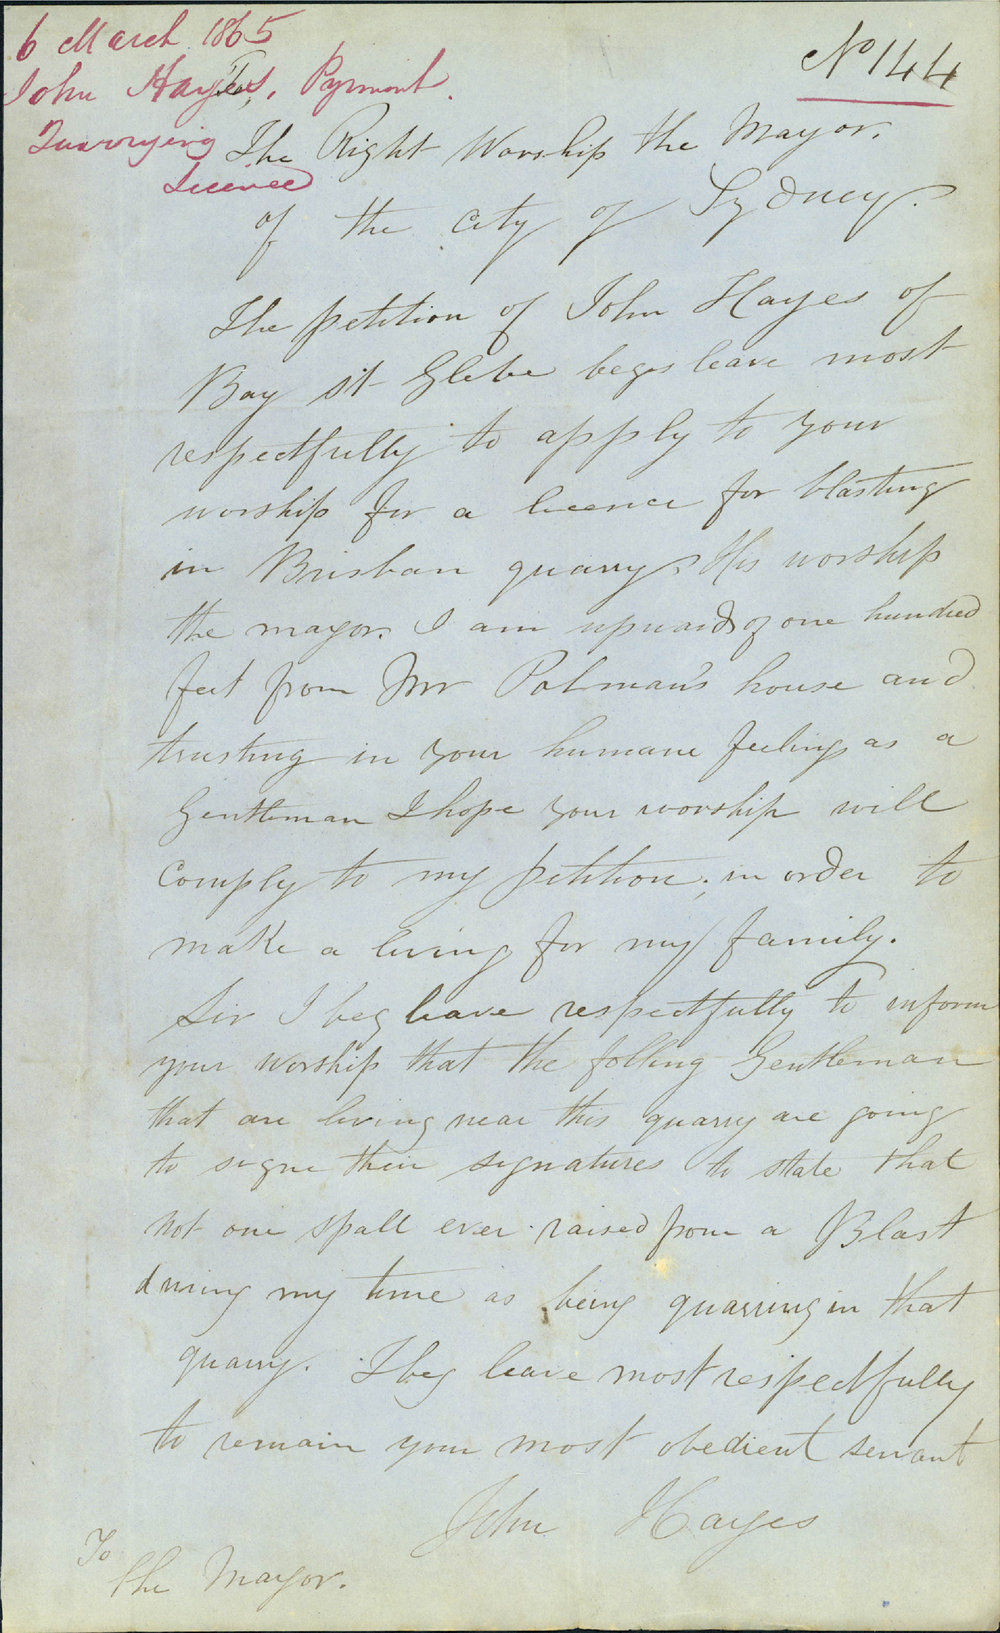 6 March 1865
No 144
John Hayes, Pyrmont.
Quarrying
Licence
The Right Worship the Mayor.
of the City of Sydney.
The petition of John Hayes of
Bay st Glebe beges leave most
respectfully to apply to your
worship for a licence for blasting
in Brisban quarry. His worship
the mayor. I am upwards of one hundred
feet from Mr Polman's house and
trusting in your humane feelings as a
Gentleman I hope your worship will
comply to my petition, in order to
make a living for my family.
Sir I beg leave respectfully to inform
your worship that the folling Gentleman
that are living near this quarry are going
to signe their signatures to state that
not one spall ever raised from a Blast
during my time as being quarring in that
quarry. I beg leave most respectfully
to remain your most obedient servant
John Hayes
To
the Mayor.